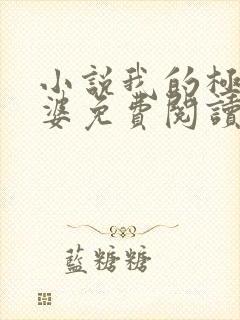 小說我的極
婆免費閱讀
藍糖糖